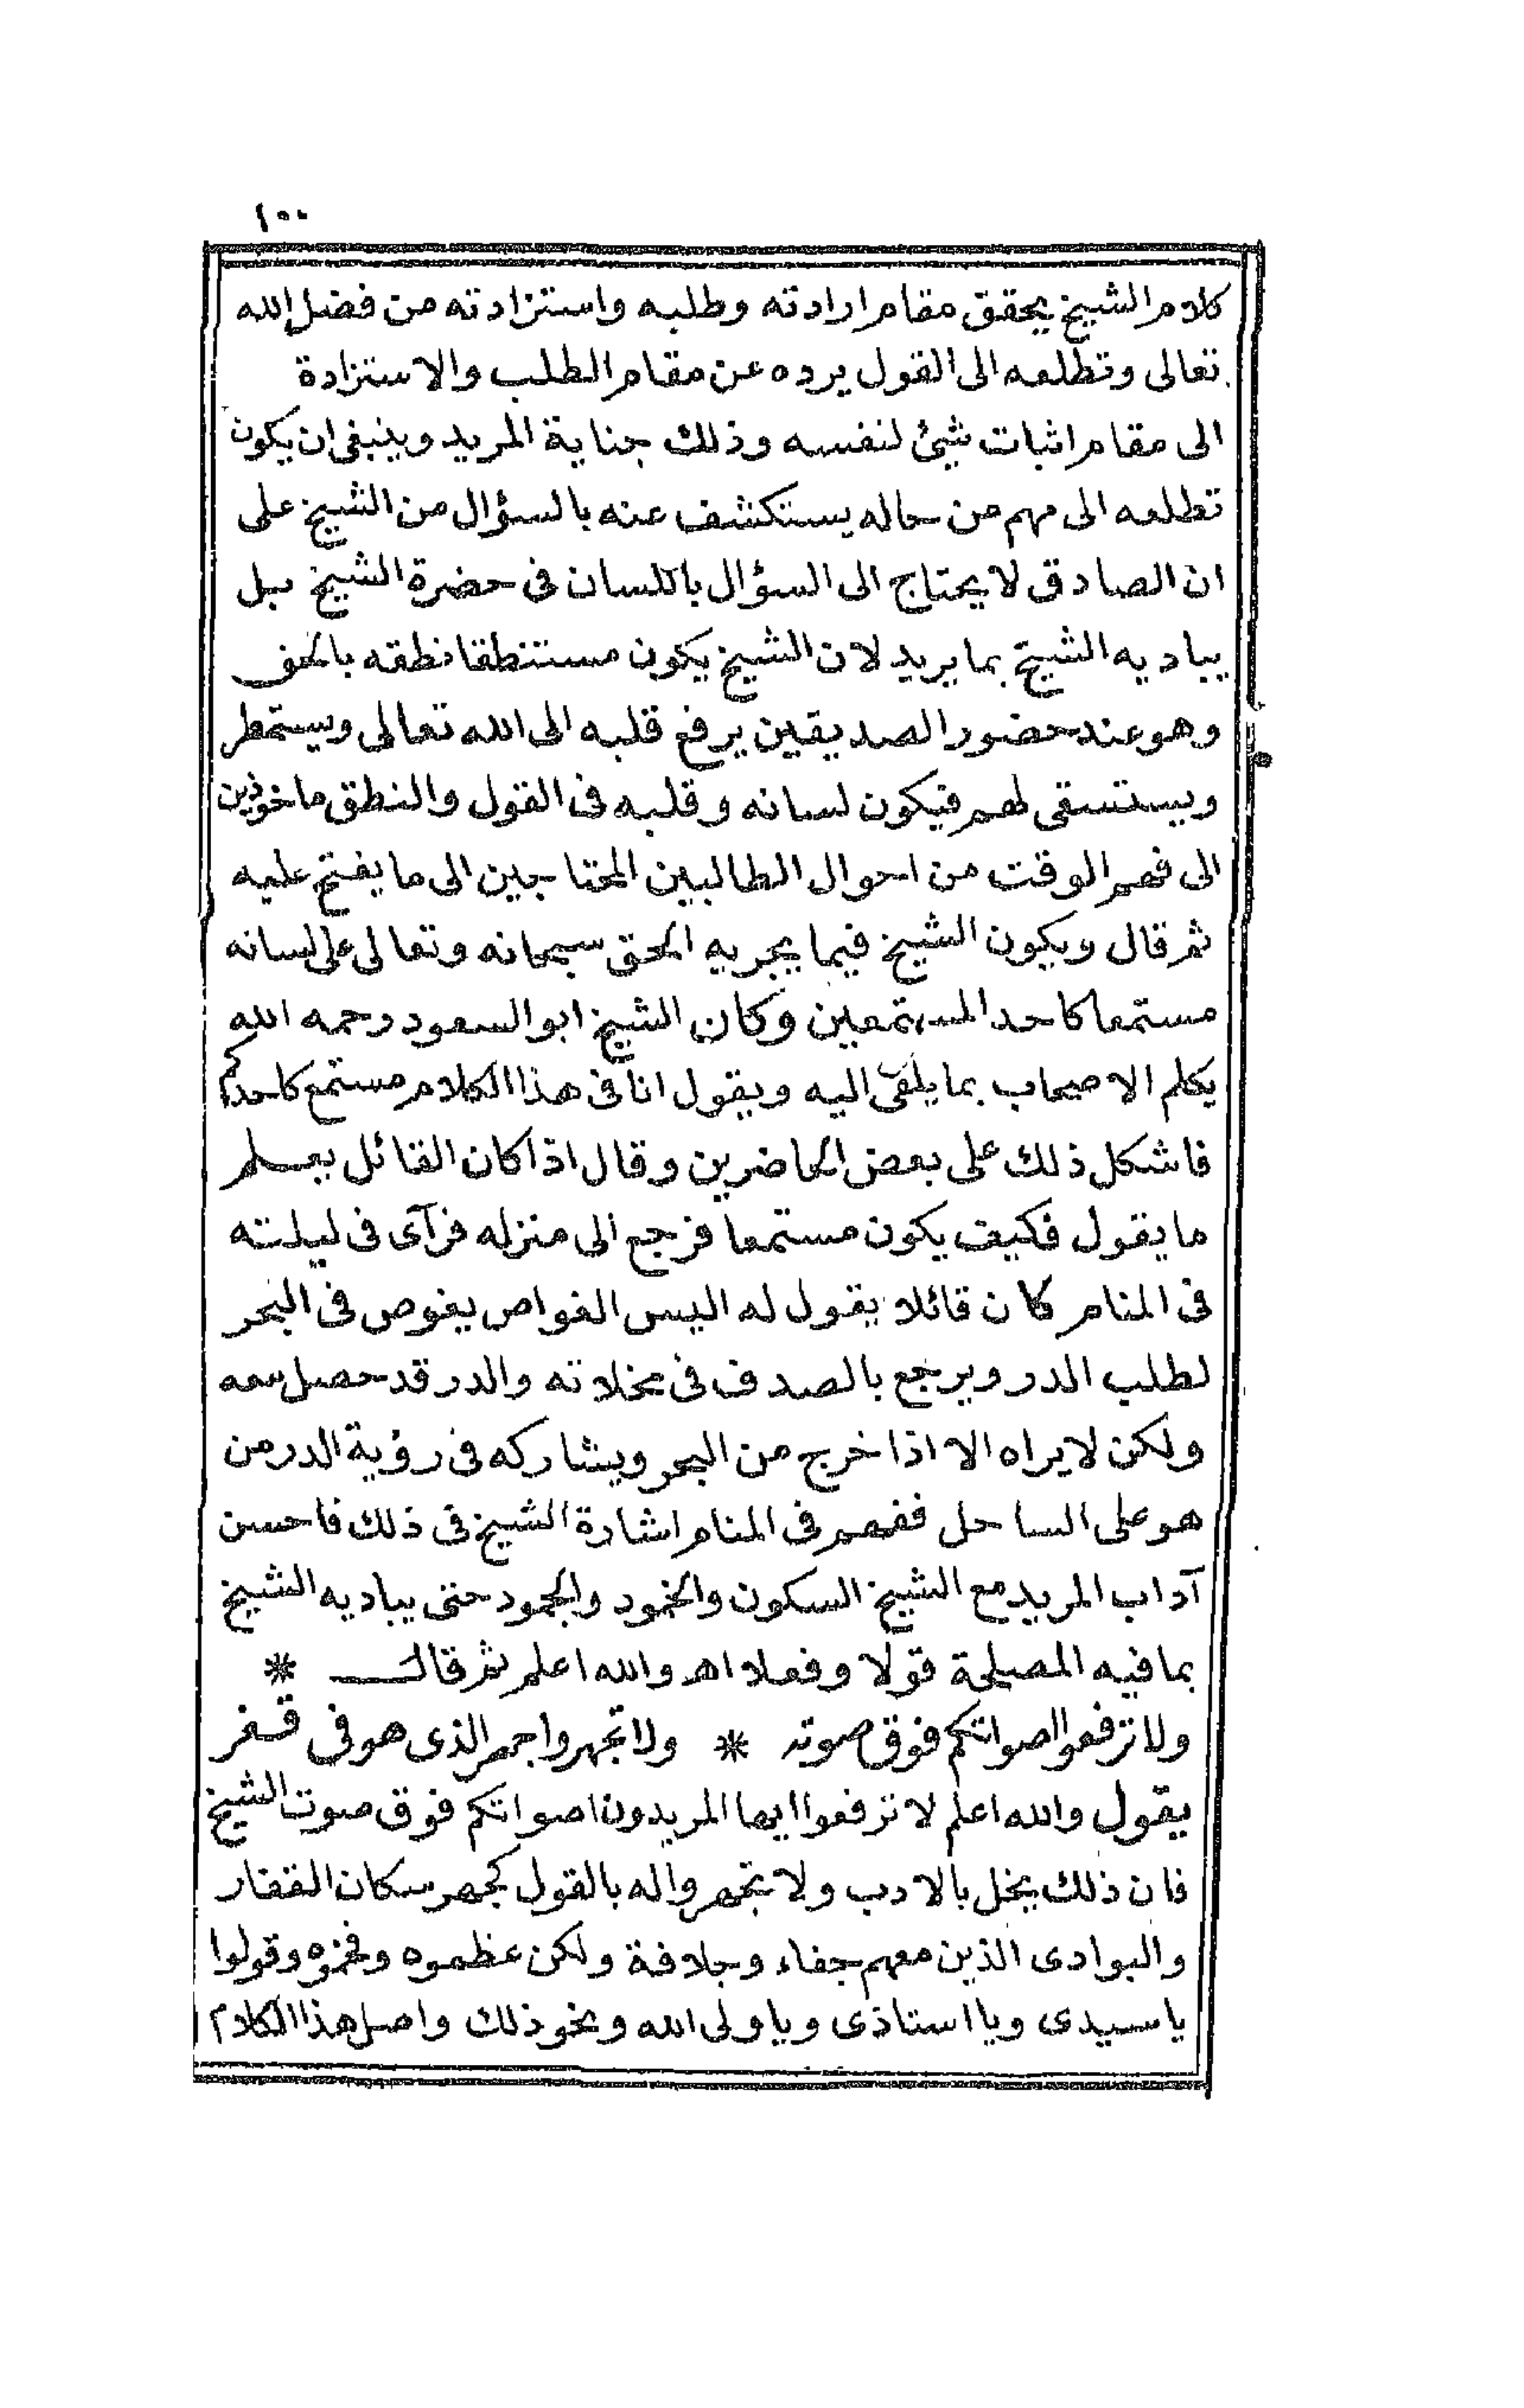 ١٠٠
كلام الشيخ يحقق مقام ارادته وطلبه واستزادته من فضل الله
تعالى وتطلعه الى القول يرده عن مقام الطلب والاستزادة
الى مقام اثبات شيئ لنفسه وذلك جناية المريد وينبغى ان يكون
تطلعه الى مهم من حاله يستكشف عنه بالسؤال من الشيخ على
ان الصادق لا يحتاج الى السؤال باللسان فى حضرة الشيخ بل
يباديه الشيخ بما يريد لان الشيخ يكون مستنطقا نطقه بالحق
وهو عند حضور الصديقين يرفع قلبه الى الله تعالى ويستمطر
ويستسقى لهم فيكون لسانه وقلبه فى القول والنطق ماخوذين
الى فهم الوقت من احوال الطالبين المحتاجين الى ما يفتح عليه
ثم قال ويكون الشيخ فيما يجريه الحق سبحانه وتعالى على لسانه
مستمعا كاحد المستمعين وكان الشيخ ابو السعود رحمه الله
يكلم الاصحاب بما يلقى اليه ويقول انا فى هذا الكلام مستمع كاحدكم
فاشكل ذلك على بعض الحاضرين وقال اذا كان القائل يعلم
ما يقول فكيف يكون مستمعا فرجع الى منزله فرآى فى ليلته
فى المنام كان قائلا يقول له اليس الغواص يغوص فى البحر
لطلب الدر ويرجع بالصدف فى مخلاته والدر قد حصل معه
ولكن لا يراه الا اذا خرج من البحر ويشاركه فى رؤية الدر من
هو على الساحل ففهم فى المنام اشارة الشيخ فى ذلك فاحسن
آداب المريد مع الشيخ السكون والخمود والجمود حتى يباديه الشيخ
بما فيه المصلحة قولا وفعلا اهـ والله اعلم ثم قال *
ولا ترفعوا اصواتكم فوق صوته * ولا تجهروا جهر الذى هو فى قفر
يقول والله اعلم لا ترفعوا ايها المريدون اصواتكم فوق صوت الشيخ
فان ذلك يخل بالادب ولا تجهروا له بالقول كجهر سكان القفار
والبوادى الذين معهم جفاء وجلافة ولكن عظموه وفخموه وقولوا
يا سيدى ويا استاذى ويا ولى الله ونحو ذلك واصل هذا الكلام